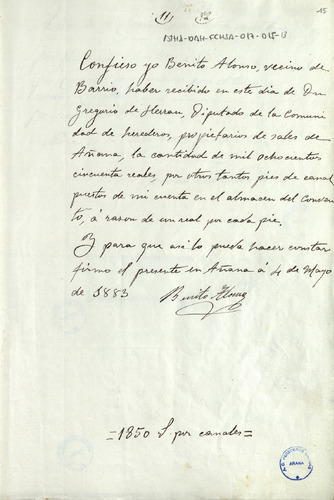 11
15
ATHA-DAH-FCHSA-017-015-13
Confieso yo Benito Alonso, vecino de
Barrio, haber recibido en este dia de Dn
Gregorio de Herran, Diputado de la Comuni
dad de herederos, propietarios de sales de
Añana, la cantidad de mil ochocientos
cincuenta reales, por otros tantos pies de canal
puestos de mi cuenta en el almacen del Conven
to, á razon de un real por cada pie.
Y para que asi lo pueda hacer constar
firmo el presente en Añana á 4 de Mayo
de 1883
Benito Alonso
=1850 S. por canales=
AÑANA